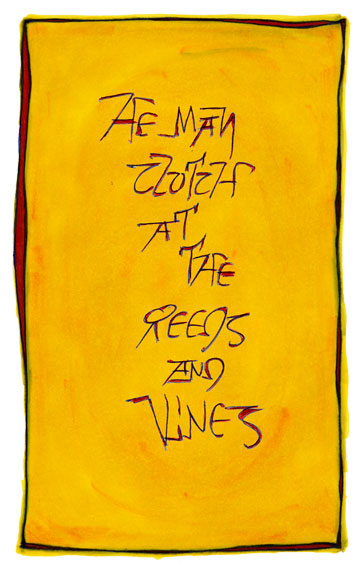 HE MAY
CLUTCH
AT
THE
REEDS
AND
VINES